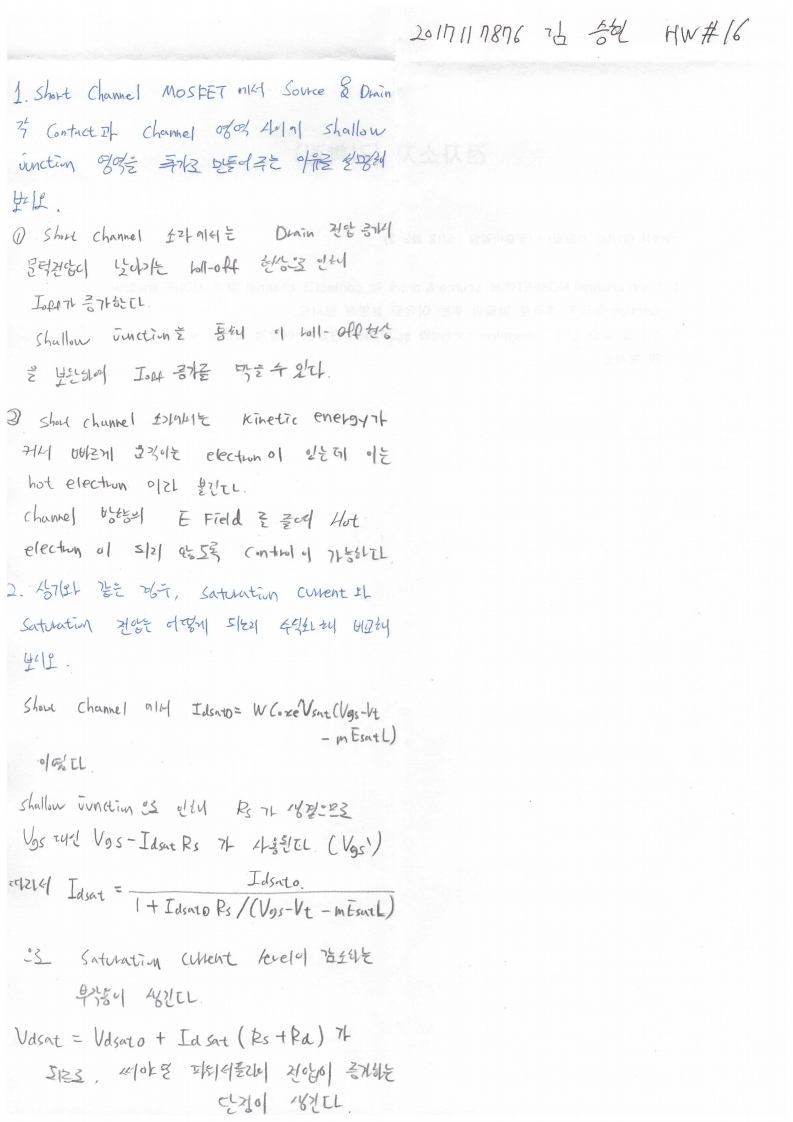 2017117876 김 승현 HW#16
1. Short Channel MOSFET 에서 Source & Drain
각 Contact과 channel 영역 사이에 shallow
junction 영역을 추가로 만들어 주는 이유를 설명해
보시오.
① Short channel 소자에서는 Drain 전압 증가시
문턱전압이 낮아지는 roll-off 현상으로 인해
Ioff가 증가한다.
shallow junction을 통해 이 roll-off현상
을 보완하여 Ioff 증가를 막을 수 있다.
② short channel 소자에서는 kinetic energy가
커서 빠르게 움직이는 electron이 있는데 이는
hot electron 이라 불린다.
channel 방향의 E Field 를 줄여 Hot
electron 이 되지 않도록 control이 가능하다.
2. 상기와 같은 경우, saturation current와
saturation 전압은 어떻게 되는지 수식화 해 비교해
보시오.
Short channel 에서 Idsat0 = WCoxeVsat(Vgs-Vt
- mEsatL)
이었다.
shallow junction으로 인해 Rs가 생겼으므로
Vgs 대신 Vgs-IdsatRs 가 사용된다. (Vgs')
따라서 Idsat = Idsat0. / 1 + Idsat0 Rs/(Vgs-Vt - mEsatL)
으로 saturation current level이 감소하는
부작용이 생긴다.
Vdsat = Vdsat0 + Idsat (Rs+Rd) 가
되므로, 써야할 파워서플라이 전압이 증가하는
단점이 생긴다.